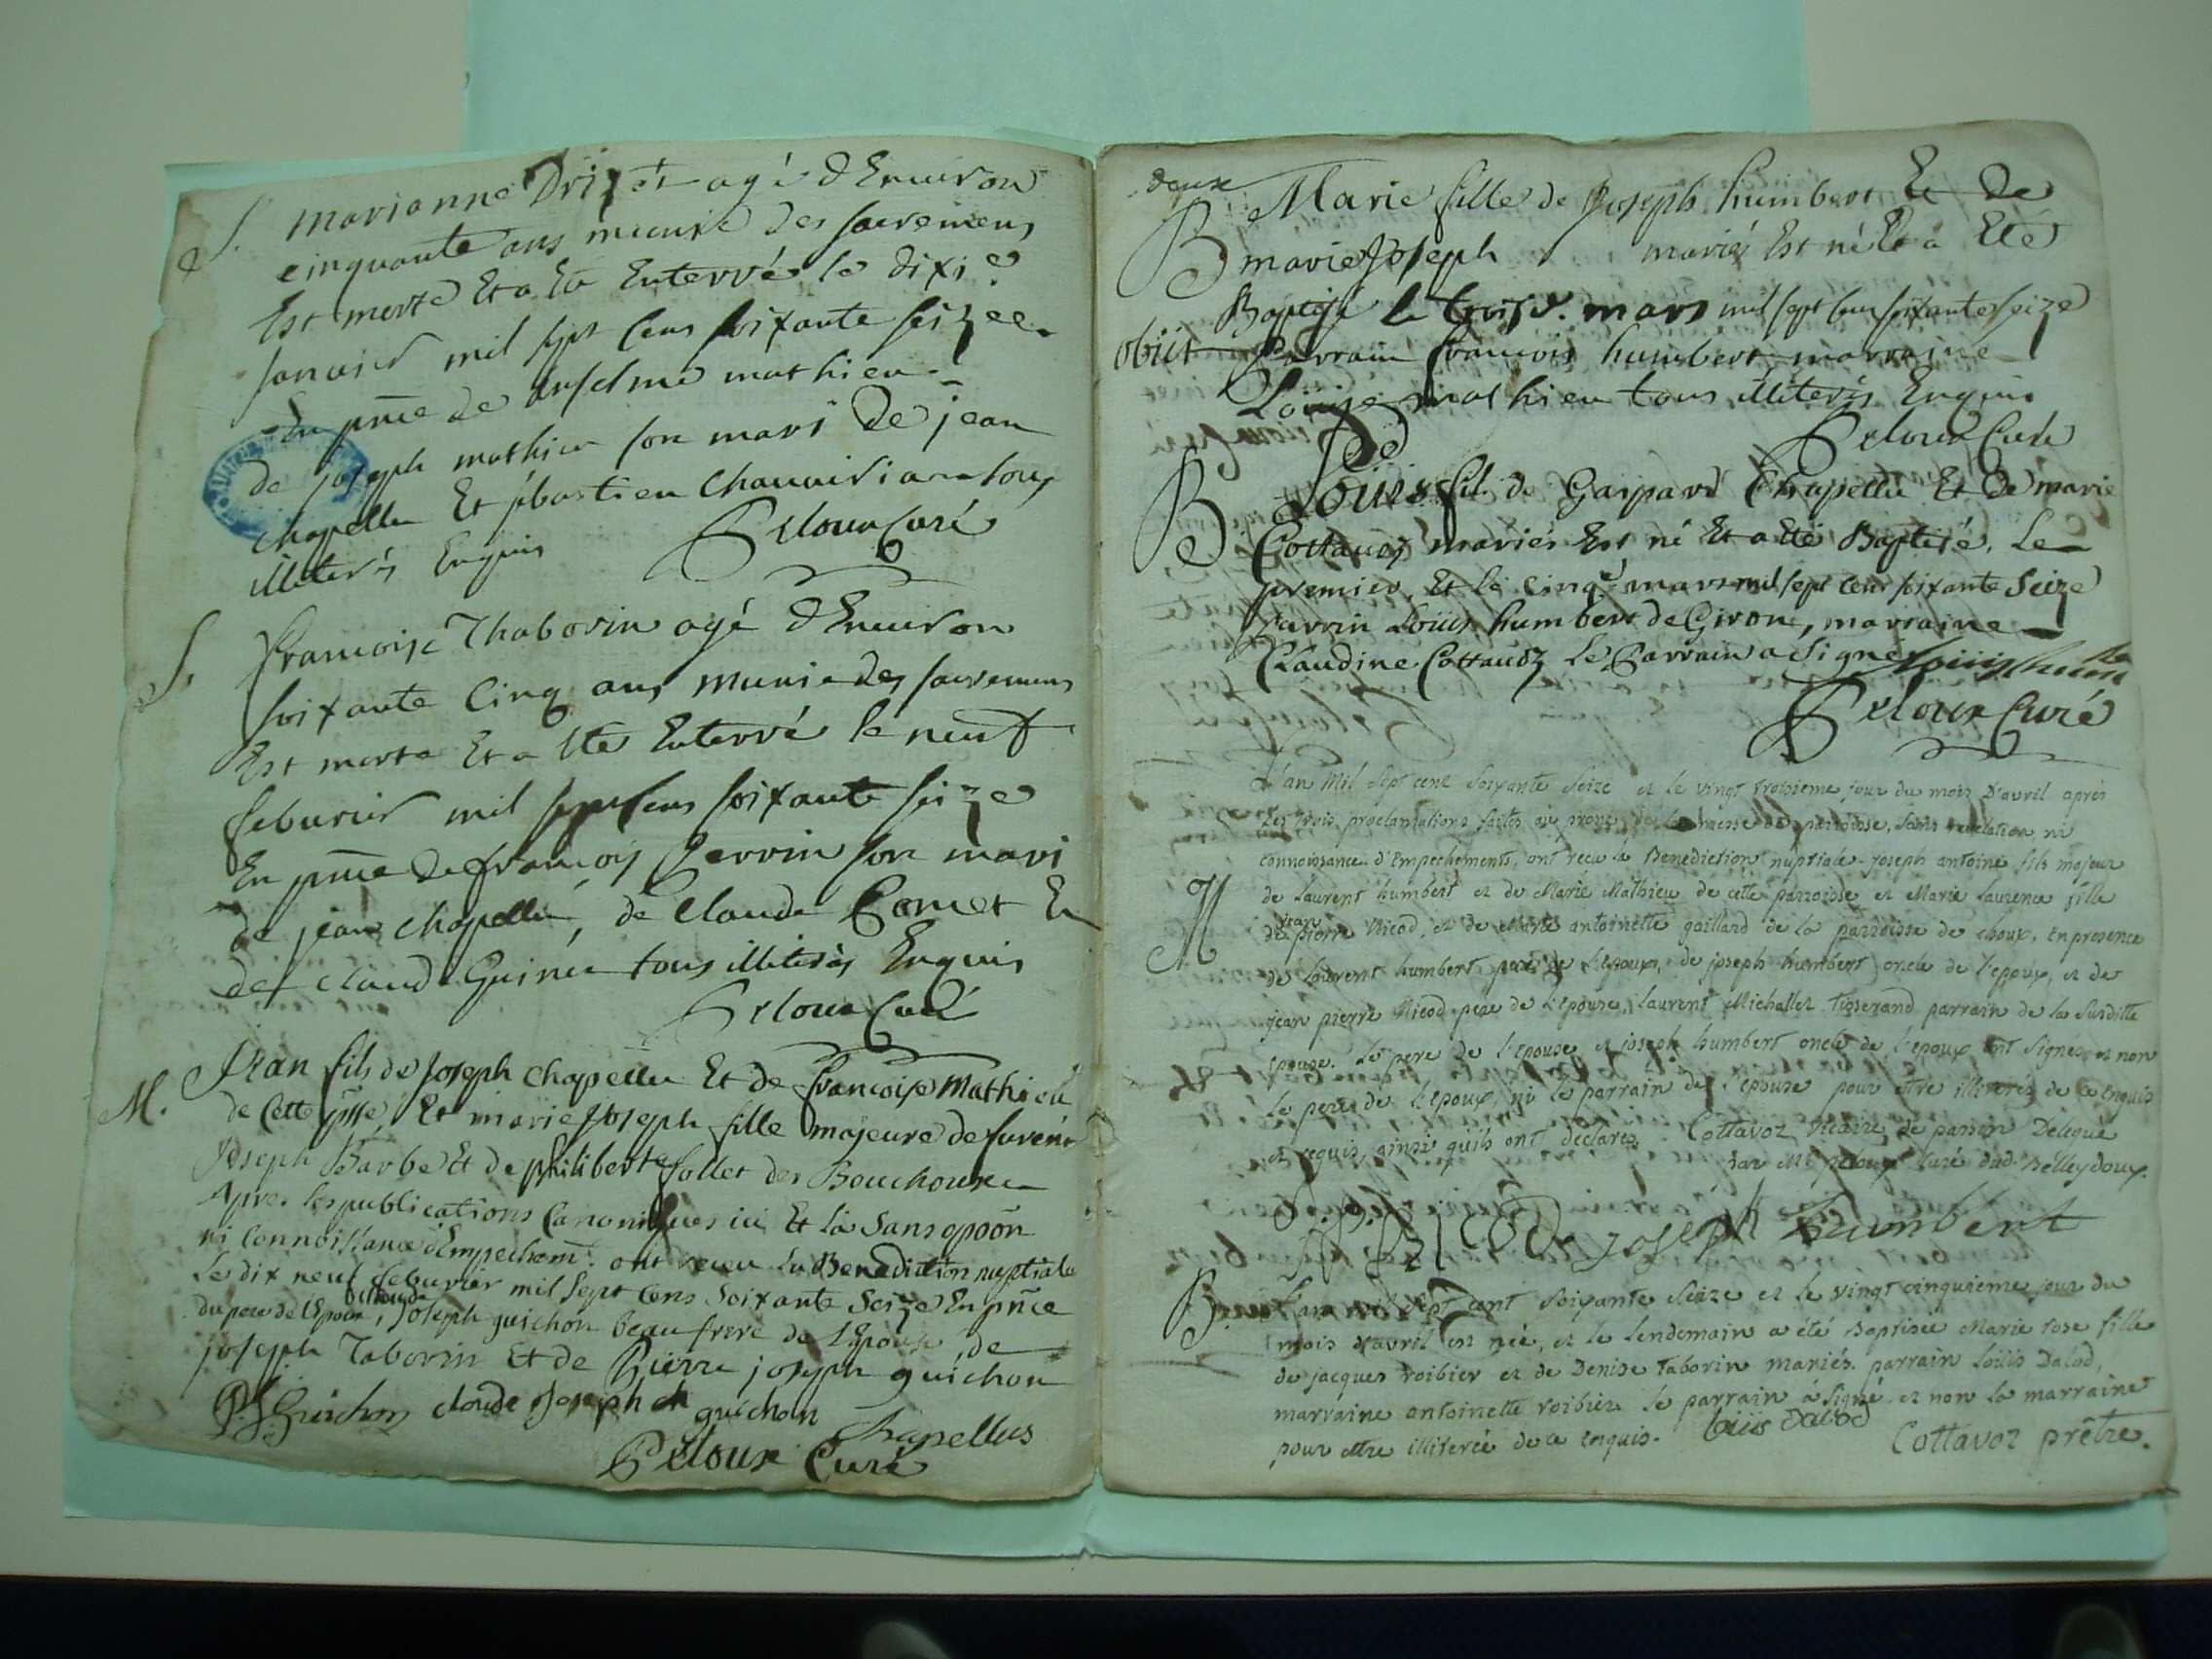 S. marianne Drizet agé d'Environ
cinquante ans munie des sacremens
Est morte Et a Eté Enterré le dixie
Janvier mil sept cens soixante seize
En pnce de anselme mathieu
de joseph mathieu son mari De jean
chapellu Et sebastien chauvin tous
illiterés Enquis Peloux Curé
S. Francoise Thaborin agé d'Environ
soixante cinq ans munie des sacremens
Est morte Et a Eté Enterré le neuf
feburier mil sept cens soixante seize
En pnce de francois Perrin son mari
de jean chapellu, de Claude Comet Et
de claude Guinet tous illiterés Enquis
Peloux Curé
M. Jean fils de Joseph chapellu Et de francoise Mathieu
de cette psse, Et marie Joseph fille majeure de furent
Joseph Barbe Et de philiberte follet des Bouchoux
Apres les publications Canoniques ici Et là sans oppoõn
ni connoissance d'Empechemt. ont receu la Benediction nuptiale
Le dix neuf feburier mil sept cens soixante seize En pnce
du pere de l'Epoux, Joseph guichon beau frere de l'Epouse, de
joseph Taborin Et de Pierre joseph guichon
PJ Guichon claude Joseph guichon Chapellus
Peloux Curé
deux
B Marie fille de Joseph humbert Et de
marie Joseph mariés Est né Et a Eté
Baptisé le trois mars mil sept cens soixante seize
obiit Parrain francois humbert marraine
Louise mathieu tous illiterés Enquis
Peloux Curé
B Louis fil. de Gaspard Chapellu Et de marie
Cottavoz mariés Est né Et a Eté Baptisé. Le
premier, Et le cinqe. mars mil sept cens soixante Seize
Parrin Louis humbert de Giron, marraine
Claudine Cottavoz Le Parrain a Signé Louis hum
Peloux Curé
L'an Mil Sept cent Soixante Seize et le vingt troisieme jour du mois D'avril après
Les trois proclamations faites au prone de la messe de parroisse, Sans revelation ni
connoissance d'Empechements, ont recu la Benediction nuptiale joseph antoine fils majeur
de Laurent humbert et de Marie Mathieu de cette parroisse et Marie Laurence fille
M de jean pierre Nicod, et de Marie antoinette gaillard de la parroisse de choux, En presence
de Laurent humbert pere de l'epoux, de joseph humbert oncle de l'epoux, et de
jean pierre Nicod pere de l'Epouse, Laurent Michallet Tisserand parrain de la Susditte
epouse. Le pere de l'epouse et joseph humbert oncle de l'epoux ont Signés et non
Le pere de l'epoux, ni le parrain de l'epouse pour être illiterés de ce Enquis
et requis, ainsi quils ont declarés. Cottavoz Vicaire de Délégué
par Mr peloux curé dud. Belleydoux.
J. P. NICOD joseph humbert
B. L'an mil Sept cent Soixante Seize et le vingt cinquieme jour du
mois d'avril est née, et le lendemain a été Baptisée Marie rose fille
de jacques roibier et de Denise Taborin mariés. parrain Louis Dalod,
marraine antoinette roibier. le parrain à Signé et non la marraine
pour être illiterée de ce enquis. Louis Dalod Cottavoz prêtre.